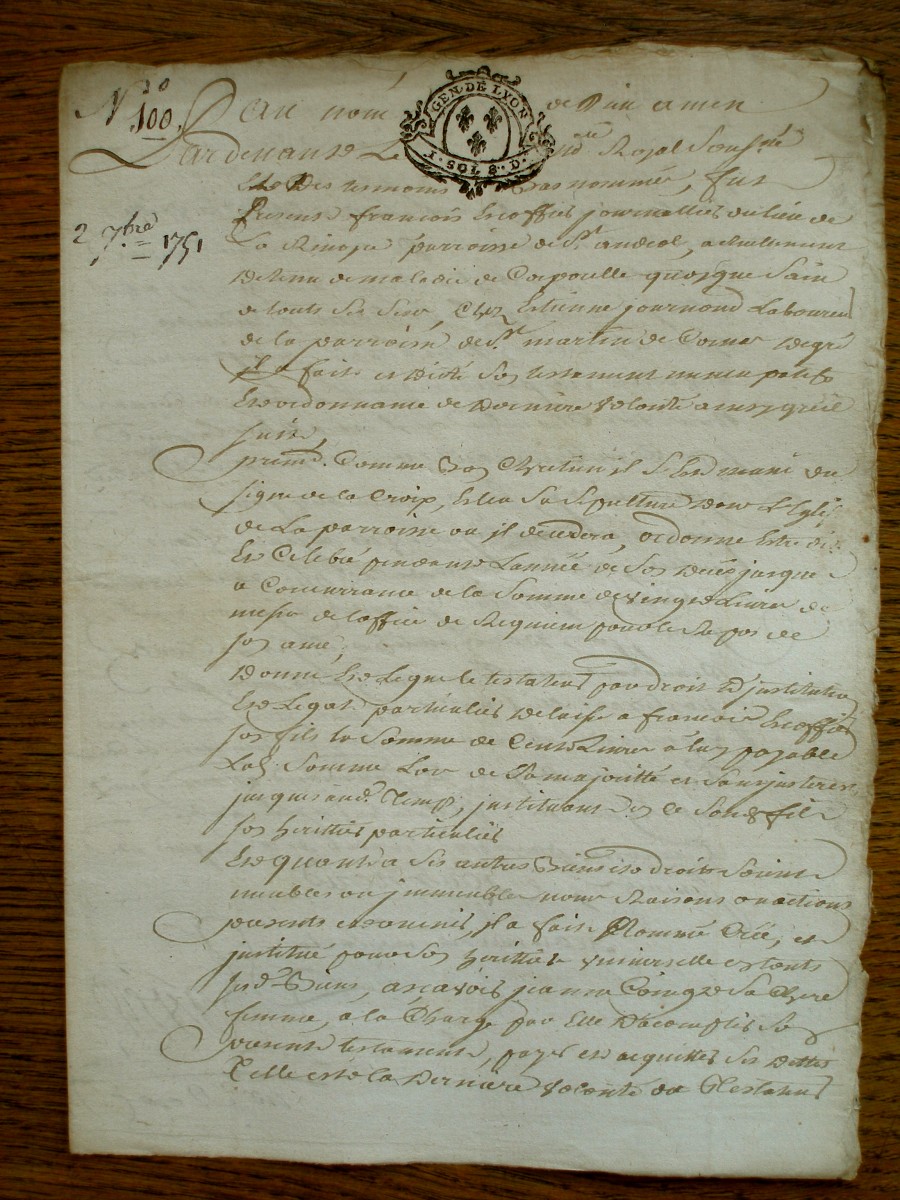 N.° 100.
GEN. DE LYON
1. SOL 8. D.
Au nom de Dieu amen
Pardevant Le nore. Royal Sousné
Et Des temoins bas nommés, fut
Present francois Escoffier journallier du lieu de
2 7bre 1751
La parroisse de St. andeol, actuellement
Detenu de maladie de Corp quoyque Sain
de touts ses sens, Chez Estienne journoud Laboureur
de la parroisse de St. martin de Cornas De gré
il a fait et Dicté Son testament nuncupatif
Et ordonnance de Derniere volonté ainsy qu'il
suit,
primt. Comme bon Chretien il S'est muni du
signe de la Croix, Esleu Sa Sepulture Dans L'Eglise
de La parroisse ou il decedera, ordonne Estre dit
Et Celebré pendant L'année de Son Decés jusques
a Concurrance de la Somme de vingt Livres de
messes de l'office de Requiem pour le Repos de
son ame,
Donne Et Legue le testateur par droit D'institution
Et Legat particulier Delaisse a francois Escoffier
son fils la Somme de Cent Livres á luy payable
Lad. Somme Lors de Sa majoritté et Sans jnterest
jusques aud. Temps, jnstituant Son fils
son herittier particulier
Et quant á Ses autres Biens et droits Soient
meubles ou jmmeubles noms Raisons ou actions
presents et avenir, il a fait Nommé Créé, et
jnstitué pour Son herittiere universelle en touts
sesd. Biens, ascavoir jeanne Sa Chere
femme, a la Charge par Elle D'acomplir Son
present testament, payer et acquitter Ses Dettes
Telle est la Derniere volonté du Testateur